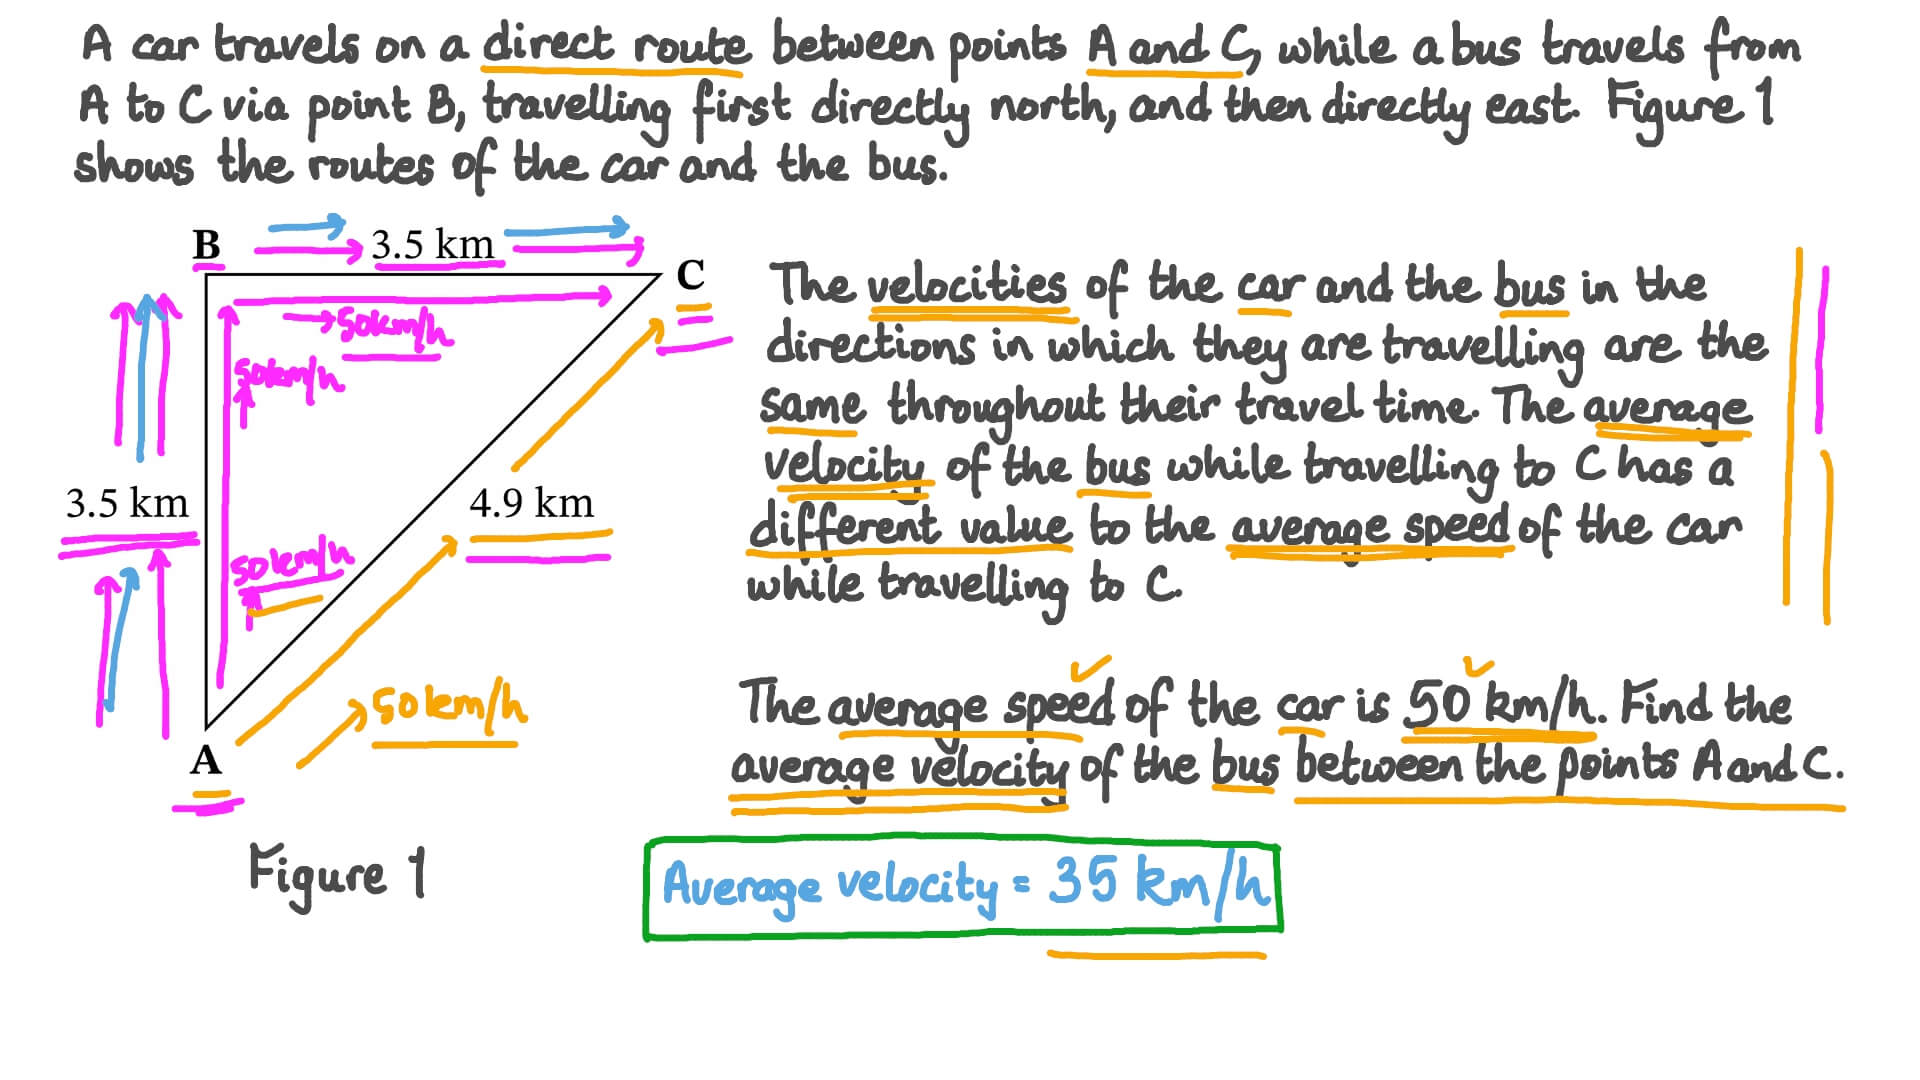 A car travels on a direct route between points A and C, while a bus travels from
A to C via point B, travelling first directly north, and then directly east. Figure 1
shows the routes of the car and the bus.
B
3.5 km
C
50km/h
50km/h
3.5 km
4.9 km
50km/h
50km/h
A
Figure 1
The velocities of the car and the bus in the
directions in which they are travelling are the
same throughout their travel time. The average
velocity of the bus while travelling to C has a
different value to the average speed of the car
while travelling to C.
The average speed of the car is 50 km/h. Find the
average velocity of the bus between the points A and C.
Average velocity = 35 km/h